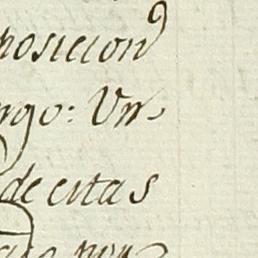 posicion
ngo: Vn-
de citas